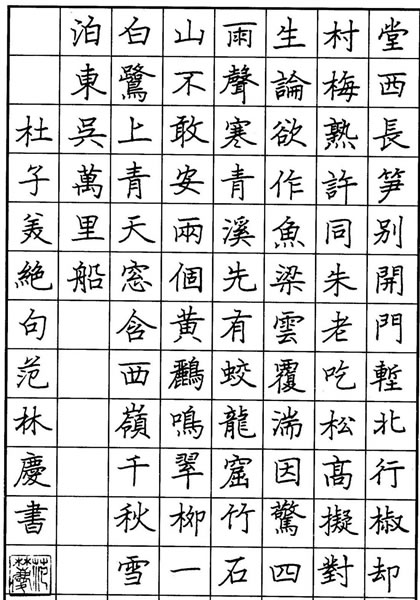 堂西長笋別開門塹北行椒却
村梅熟許同朱老吃松高擬對
生論欲作魚梁雲覆湍因驚四
雨聲寒青溪先有蛟龍窟竹石
山不敢安兩個黃鸝鳴翠柳一
白鷺上青天窓含西嶺千秋雪
泊東吳萬里船
杜子美絕句范林慶書
范林慶